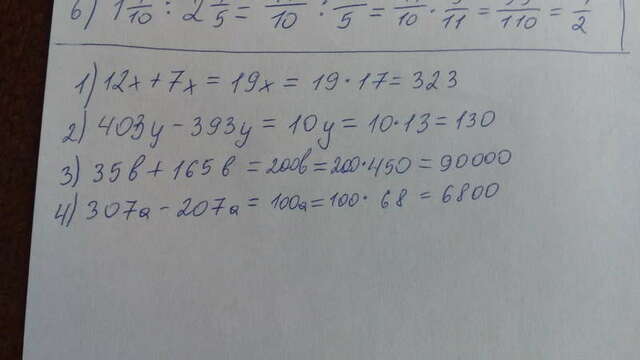 6) 1 1/10 : 2 1/5 = 11/10 : /5 = 11/10 · 5/11 = 55/110 = 1/2
1) 12x + 7x = 19x = 19 · 17 = 323
2) 403y - 393y = 10y = 10 · 13 = 130
3) 35в + 165в = 200в = 200 · 450 = 90000
4) 307a - 207a = 100a = 100 · 68 = 6800